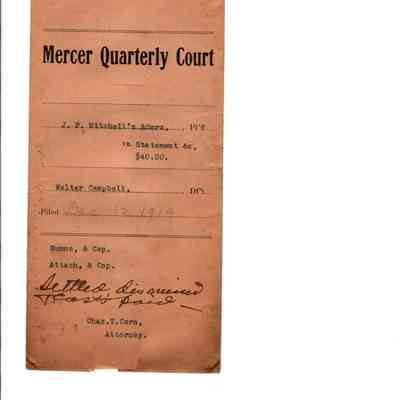 Mercer Quarterly Court
J. P. Mitchell's Admrs. Pl'ff.
vs Statement &c.
$40.00.
Walter Campbell. Df't.
Filed Dec 12 1919
Summn, & Cop.
Attach, & Cop.
Settled dismissed
Costs paid
Chas.T.Corn,
Attorney.